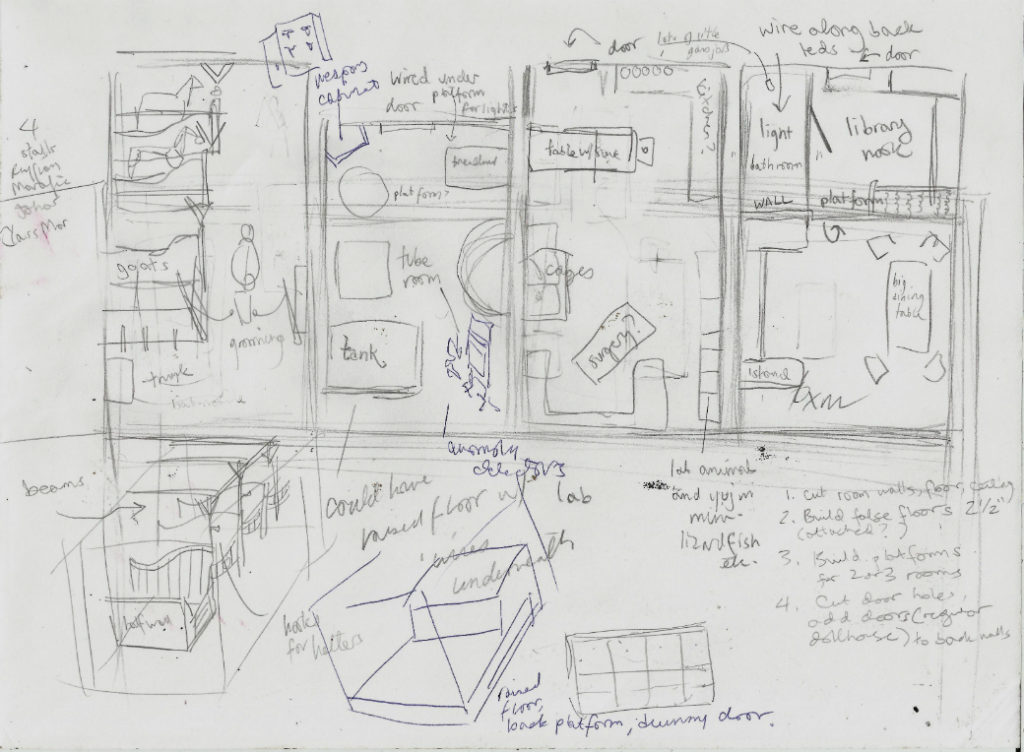 wire along back
leds
door
door
lots of little
weapon
cabinet
wired under
platform
for lights
door
table w/
light
bathroom
library
nook
platform?
WALL
platform
4
stalls
goats
tube
room
cages
big
dining
table
grooming
tank
surgery?
trunk
island
anomaly
detectors
beams
could have
raised floor w/
wires
underneath
lab
lab animals
and
mini
lizardfish
etc.
1. Cut room walls, floor, ceiling
2. Build false floors 2 1/2"
(attached?)
3. Build platforms
for 2 or 3 rooms
4. Cut door holes,
add doors (regular
dollhouse) to back walls
half wall
hooks
for halters
raised
floor,
back platform, dummy door.